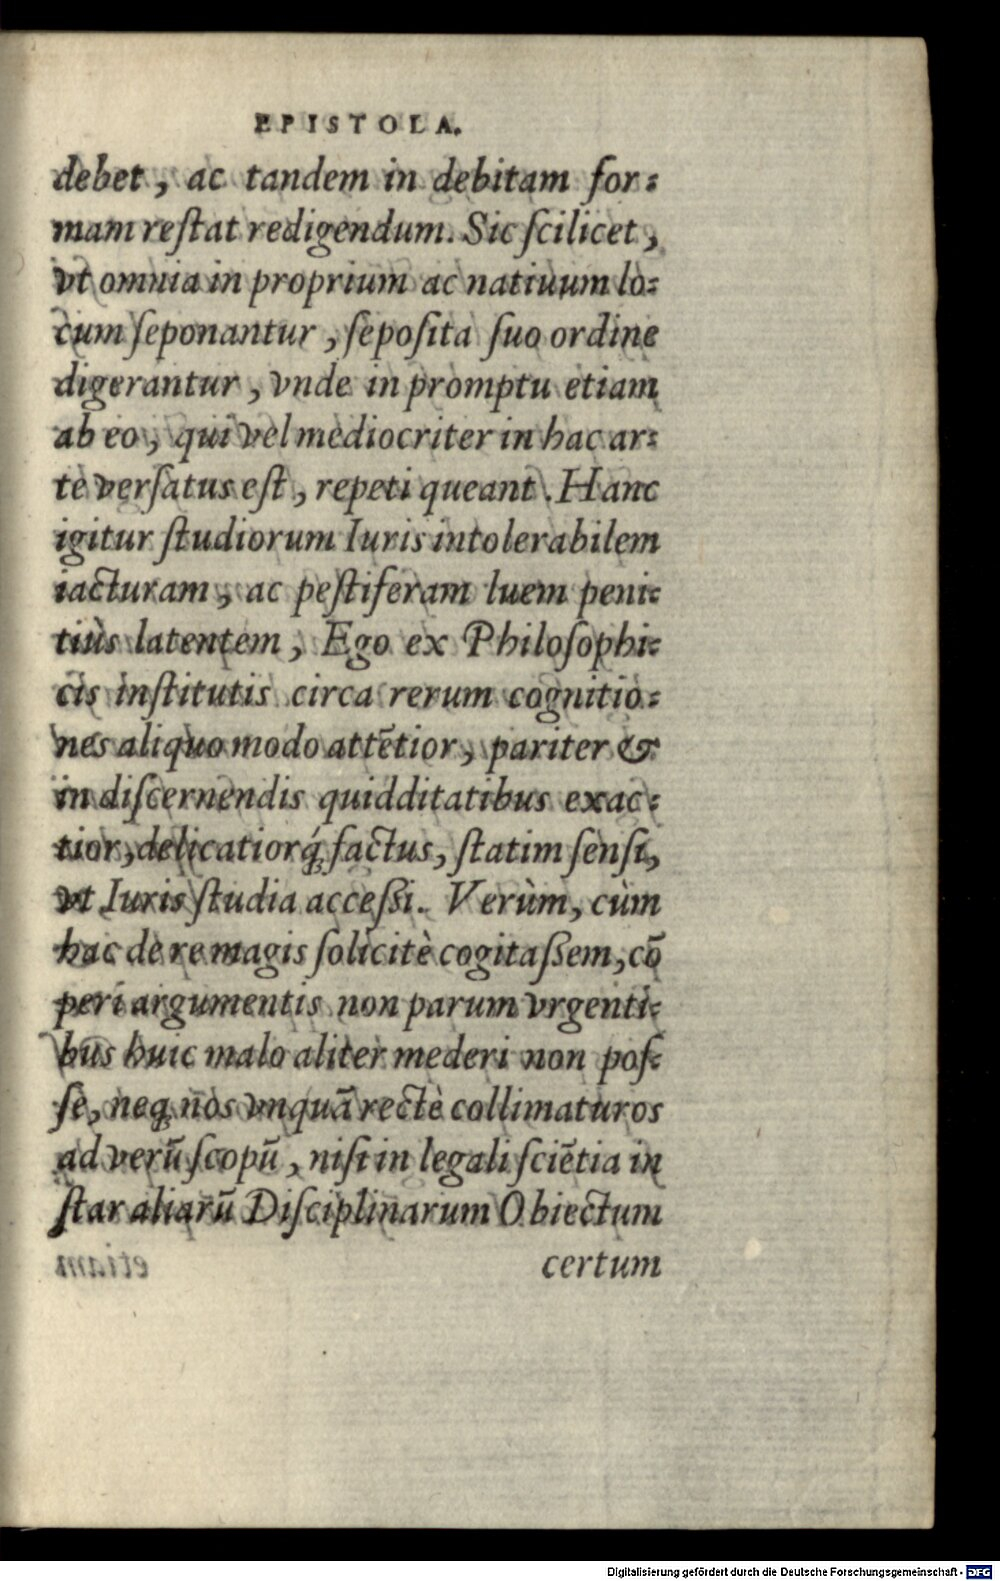 EPISTOLA.
debet, ac tandem in debitam for-
mam reſtat redigendum. Sic ſcilicet,
vt omnia in proprium ac natiuum lo-
cum ſeponantur, ſepoſita ſuo ordine
digerantur, vnde in promptu etiam
ab eo, qui vel mediocriter in hac ar-
te verſatus eſt, repeti queant. Hanc
igitur ſtudiorum Iuris intolerabilem
iacturam, ac peſtiferam luem peni-
tiùs latentem, Ego ex Philoſophi-
cis inſtitutis circa rerum cognitio-
nes aliquo modo attẽtior, pariter &
in diſcernendis quidditatibus exac-
tior, delicatiorq́; factus, ſtatim ſenſi,
vt Iuris ſtudia acceßi. Verùm, cùm
hac de re magis ſolicitè cogitaßem, cõ
peri argumentis non parum vrgenti-
bus huic malo aliter mederi non poſ-
ſe, neq; nos vnquã rectè collimaturos
ad verũ ſcopũ, niſi in legali ſciẽtia in
ſtar aliarũ Diſciplinarum Obiectum
certum
Digitalisierung gefördert durch die Deutsche Forschungsgemeinschaft - DFG